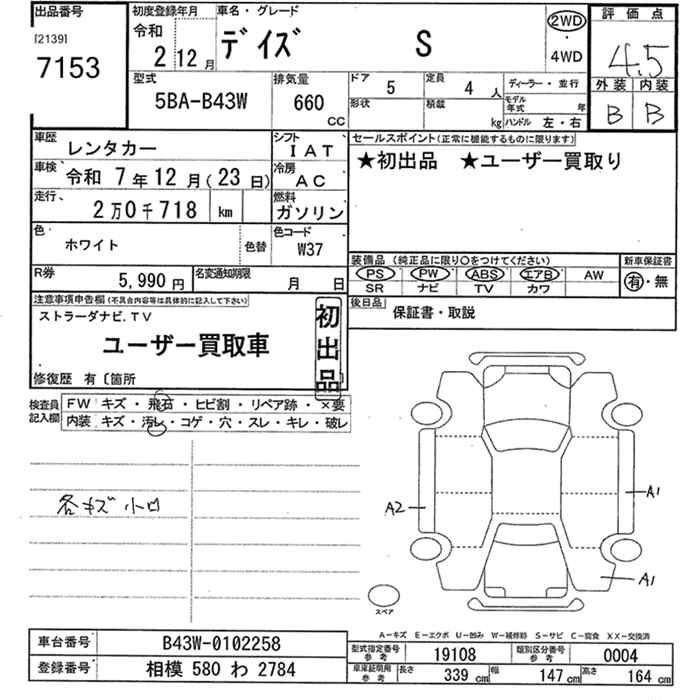 出品番号
[2139]
7153
初度登録年月
令和
2 12 月
車名・グレード
デイズ S
2WD
・
4WD
評価点
4.5
外装 内装
B B
型式
5BA-B43W
排気量
660
CC
ドア
5
定員
4 人
ディーラー・並行
形状
積載
kg
モデル年式 年
ハンドル 左・右
車歴
レンタカー
シフト
IAT
セールスポイント(正常に機能するものに限ります)
★初出品 ★ユーザー買取り
車検
令和 7年12月(23日)
冷房
AC
走行
2万0千718 km
燃料
ガソリン
色
ホワイト
色替
色コード
W37
装備品 (純正品に限り○をつけてください)
新車保証書
PS PW ABS エアB AW
SR ナビ TV カワ
有・無
R券
5,990円
名変通知期限
月 日
後日品
保証書・取説
注意事項申告欄(不具合内容等は具体的に記入して下さい)
ストラーダナビ.TV
ユーザー買取車
初出品
修復歴 有〔箇所
検査員
記入欄
FW キズ・飛石・ヒビ割・リペア跡・×要
内装 キズ・汚レ・コゲ・穴・スレ・キレ・破レ
各キズ 小凹
A2
A1
A1
スペア
A−キズ E−エクボ U−凹み W−補修跡 S−サビ C−腐食 XX−交換済
車台番号
B43W-0102258
型式指定番号
参考
19108
類別区分番号
参考
0004
登録番号
相模 580 わ 2784
車庫証明用
参考
長さ
339 cm
幅
147 cm
高さ
164 cm